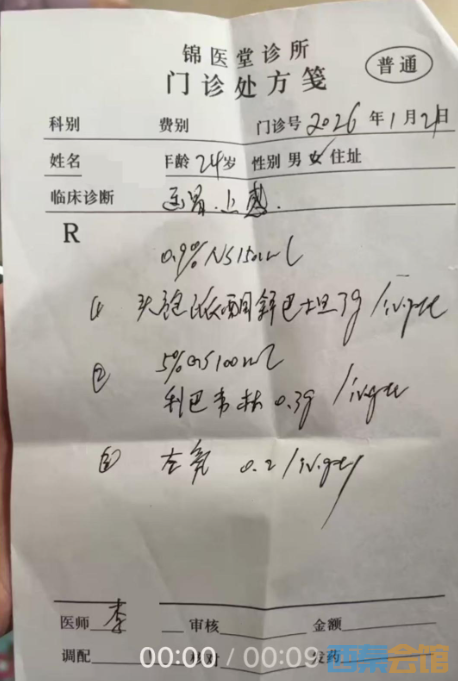 锦医堂诊所
门诊处方笺
普通
科别 费别 门诊号 2026 年 1 月 21日
姓名 年龄 24岁 性别 男 女 住址
临床诊断 上感.
R
0.9%NS150mL
① 头孢哌酮舒巴坦3g /iv.gtt
② 5%GS100mL
利巴韦林 0.3g /iv.gtt
③ 左氧 0.2/iv.gtt
医师 李 审核 金额
调配 核对 发药
00:00 / 00:09
西蒙会馆